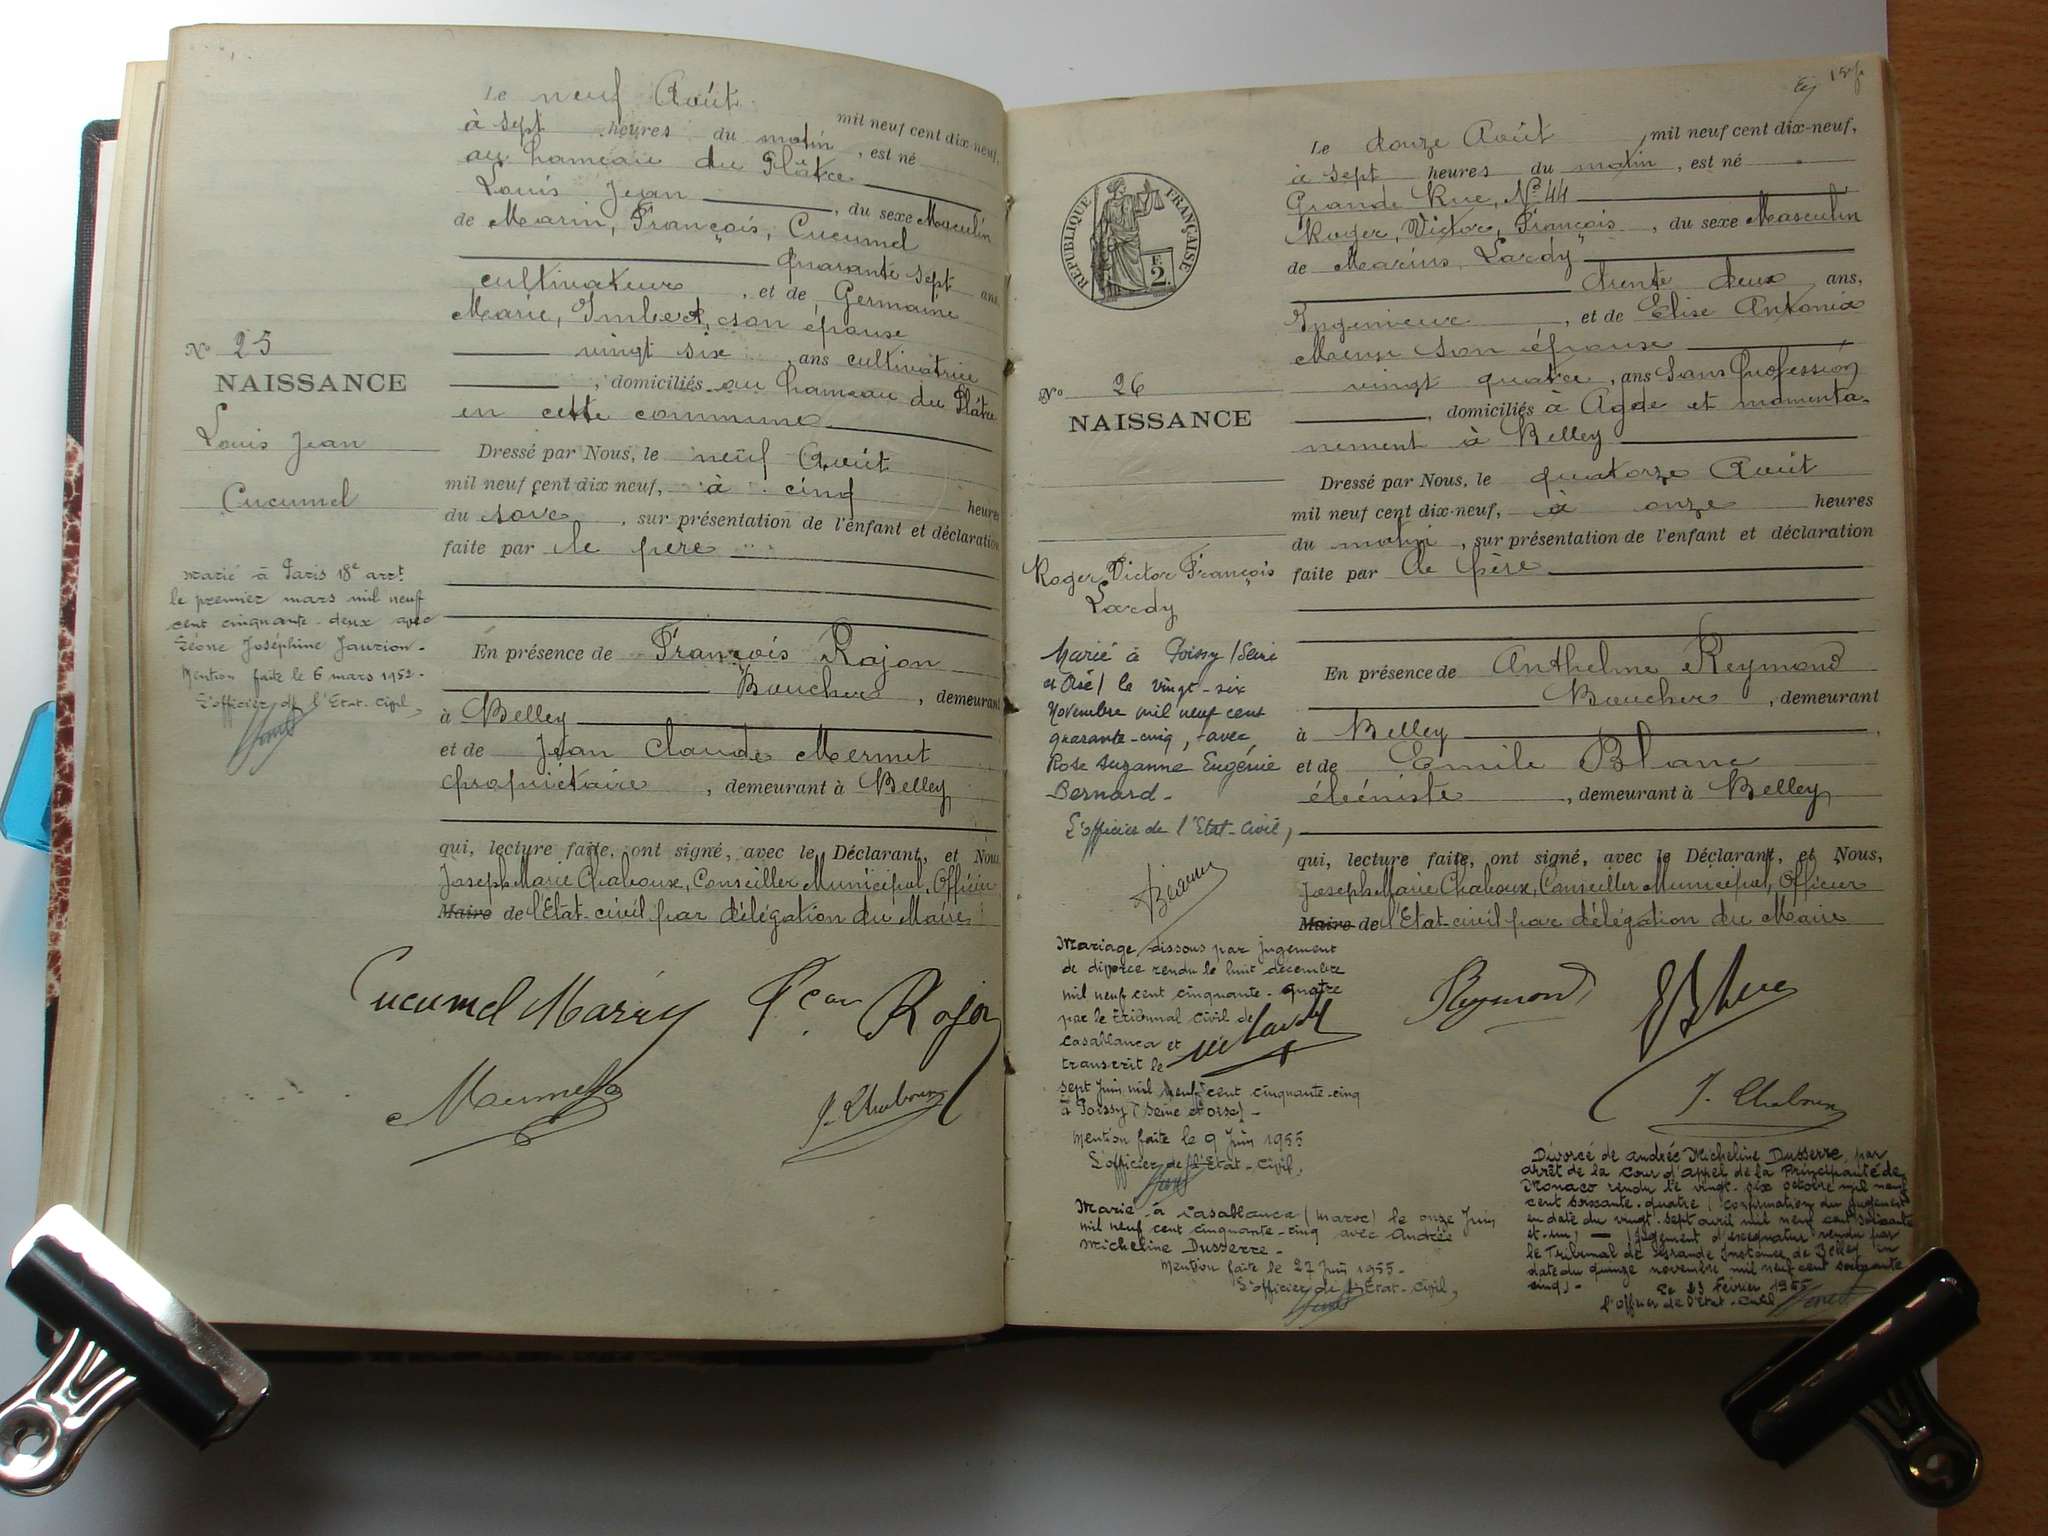 Le neuf Août mil neuf cent dix-neuf,
à sept heures du matin, est né
au hameau du Plâtre
Louis Jean, du sexe Masculin
de Marin, François, Cucumel
Quarante sept ans
cultivateur, et de Germaine
Marie, Imbert, son épouse
vingt six, ans cultivatrice
, domiciliés au hameau du Plâtre
en cette commune
Dressé par Nous, le neuf Août
mil neuf cent dix neuf, à cinq heures
du soir, sur présentation de l'enfant et déclaration
faite par le père
En présence de François Rojon
Boucher, demeurant
à Belley
et de Jean Claude Mermet
propriétaire, demeurant à Belley
qui, lecture faite, ont signé, avec le Déclarant, et Nous,
Joseph Marie Chaboux, Conseiller Municipal, Officier
Maire de l'Etat-civil par délégation du Maire
Nº 25
NAISSANCE
Louis Jean
Cucumel
Marié à Paris 18e arrt
le premier mars mil neuf
cent cinquante-deux avec
Léone Joséphine Jaurion.
Mention faite le 6 mars 1952.
L'officier de l'Etat-Civil,
Cucumel Marin Rojon
Mermet J. Chaboux
157
Le douze Août, mil neuf cent dix-neuf,
à sept heures du matin, est né
Grande Rue, Nº 44
Roger, Victor, François, du sexe Masculin
de Marius, Lardy
trente deux ans,
Ingénieur, et de Elise Antonia
son épouse
vingt quatre, ans Sans Profession
, domiciliés à Agde et momenta-
nement à Belley
Dressé par Nous, le quatorze Août
mil neuf cent dix-neuf, à onze heures
du matin, sur présentation de l'enfant et déclaration
faite par le père
En présence de Anthelme Reymond
Boucher, demeurant
à Belley,
et de Emile Blanc
ébéniste, demeurant à Belley
qui, lecture faite, ont signé, avec le Déclarant, et Nous,
Joseph Marie Chaboux, Conseiller Municipal, Officier
Maire de l'Etat-civil par délégation du Maire
REPUBLIQUE FRANÇAISE
F. 2.
Nº 26
NAISSANCE
Roger Victor François
Lardy
Marié à Poissy (Seine
et Oise) le vingt-six
Novembre mil neuf cent
quarante-cinq, avec
Rose Suzanne Eugénie
Bernard.
L'officier de l'Etat-Civil,
Mariage dissous par jugement
de divorce rendu le huit décembre
mil neuf cent cinquante-quatre
par le tribunal Civil de
Casablanca et
transcrit le
sept Juin mil neuf cent cinquante-cinq
à Poissy (Seine et Oise)
Mention faite le 9 Juin 1955
L'officier de l'Etat-Civil,
Marié à Casablanca (Maroc) le onze Juin
mil neuf cent cinquante-cinq avec Andrée
Micheline Dusserre.
Mention faite le 27 Juin 1955.
L'officier de l'Etat-Civil,
Lardy Reymond
J. Chaboux
Divorcé de Andrée Micheline Dusserre, par
arrêt de la Cour d'appel de la Principauté de
Monaco rendu le vingt-six octobre mil neuf
cent soixante-quatre (confirmation du jugement
en date du vingt-sept avril mil neuf cent soixante
et-un) (Jugement d'exequatur rendu par
le Tribunal de Grande Instance de Belley en
date du quinze novembre mil neuf cent soixante
cinq).
Le 23 Février
l'officier de l'Etat-Civil